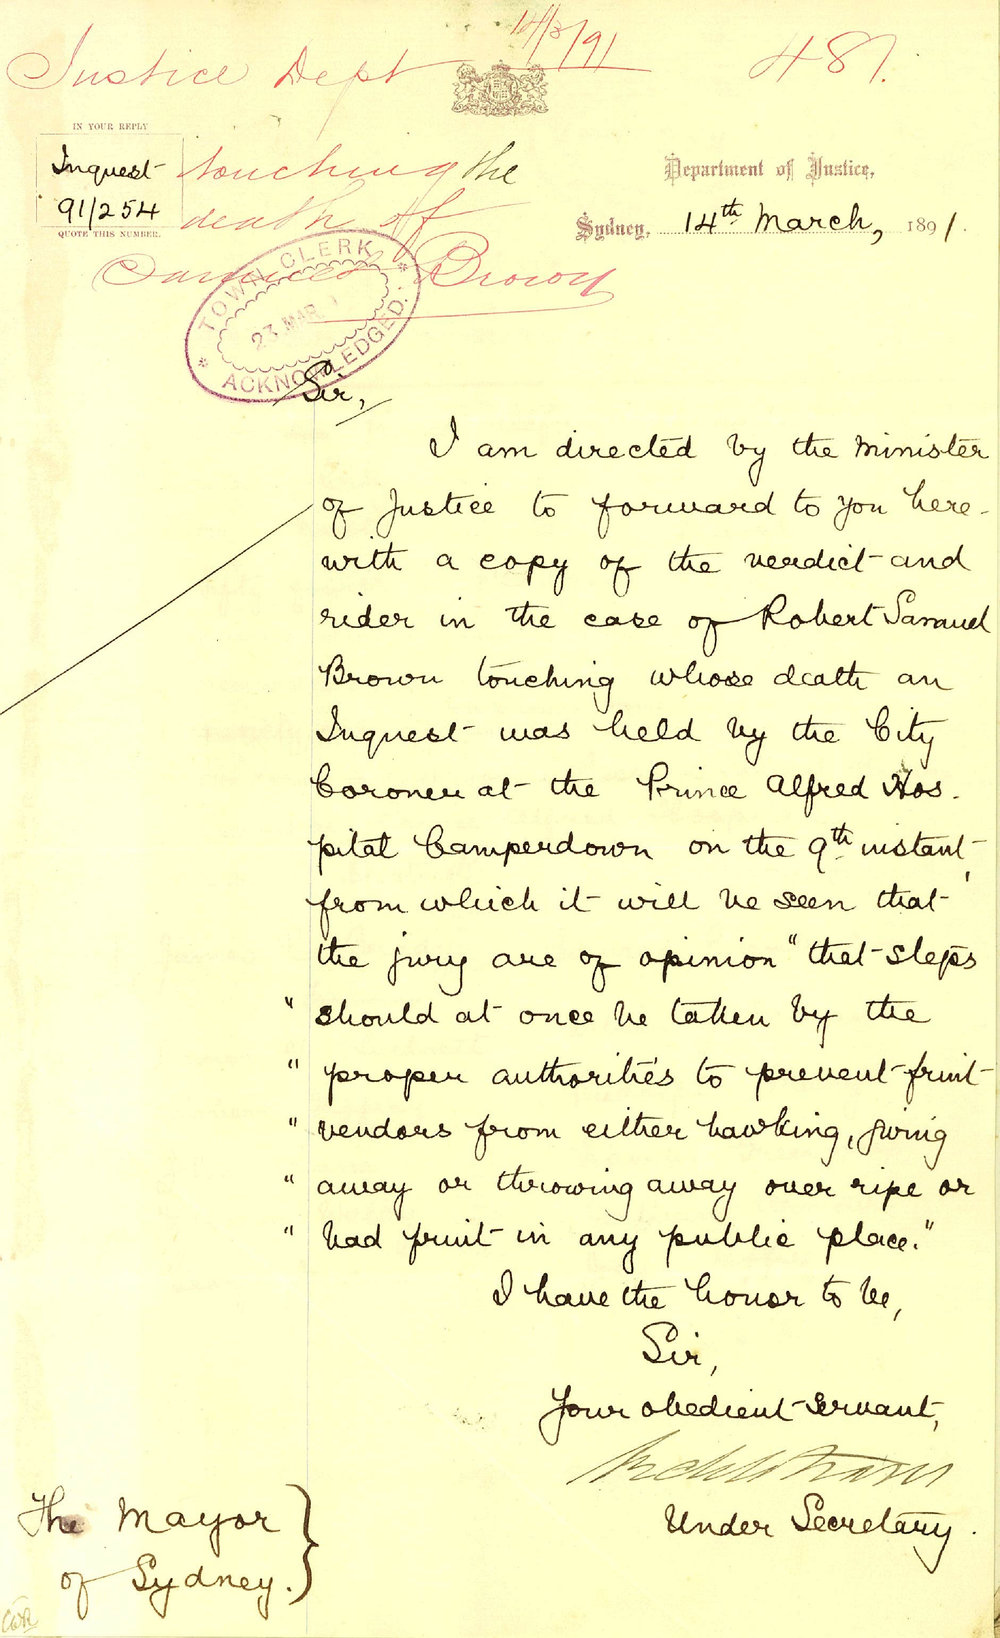 Justice Dept 14/3/91 481.
IN YOUR REPLY
Inquest
91/254
QUOTE THIS NUMBER.
touching the
death of
Samuel Brown
Department of Justice,
Sydney, 14th March, 1891.
TOWN CLERK
23 MAR
ACKNOWLEDGED.
Sir,
I am directed by the Minister
of Justice to forward to you here-
with a copy of the verdict and
rider in the case of Robert Samuel
Brown touching whose death an
Inquest was held by the City
Coroner at the Prince Alfred Hos-
pital Camperdown on the 9th instant,
from which it will be seen that
the jury are of opinion "that steps
" should at once be taken by the
" proper authorities to prevent fruit
" vendors from either hawking, giving
" away or throwing away over ripe or
" bad fruit in any public place."
I have the honor to be,
Sir,
Your obedient servant,
Under Secretary.
The Mayor
of Sydney.